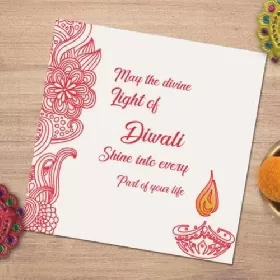 May the divine
Light of
Diwali
Shine into every
Part of your life